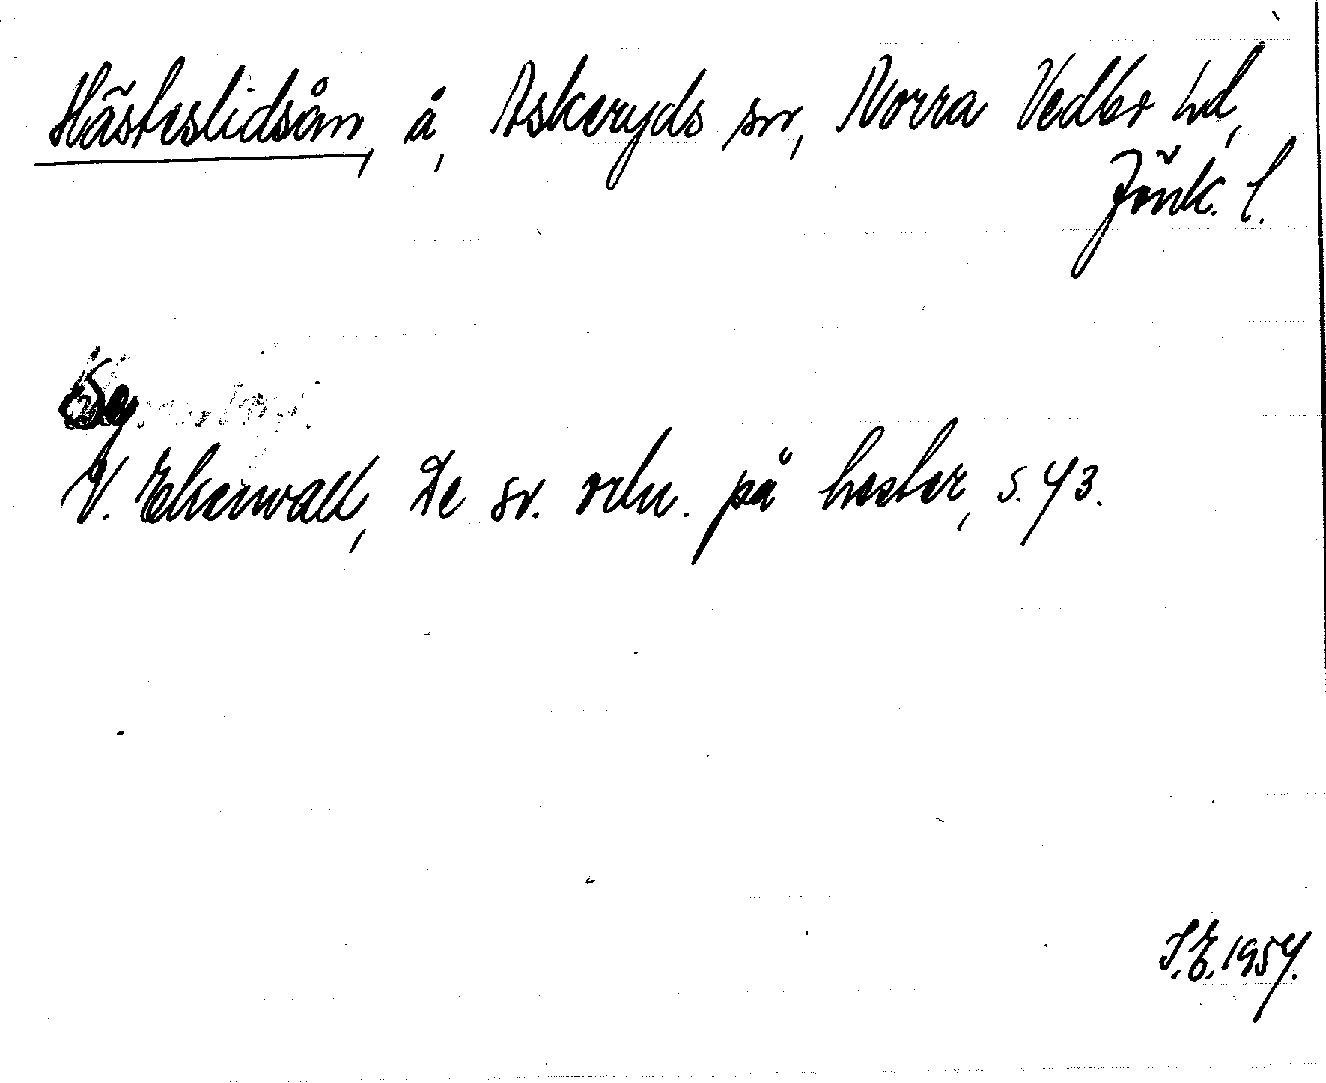 Hästeslidsån, å, Askeryds sn, Norra Vedbo hd,
Jönk. l.
V. Ekenvall, De sv. ortn. på hester, s. 43.
S.E. 1954.